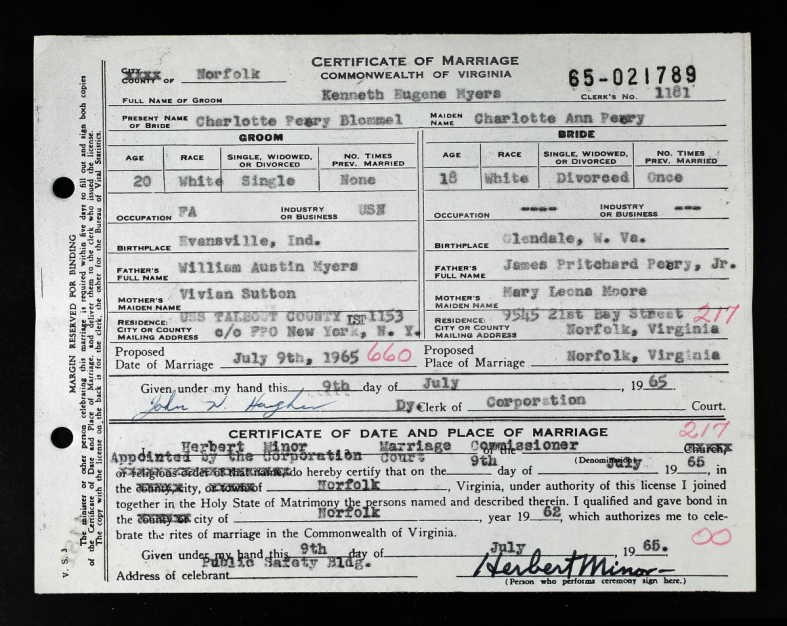 CERTIFICATE OF MARRIAGE
COMMONWEALTH OF VIRGINIA
CITY
COUNTY OF Norfolk
65-021789
FULL NAME OF GROOM Kenneth Eugene Myers CLERK'S NO. 1181
PRESENT NAME OF BRIDE Charlotte Peery Blommel MAIDEN NAME Charlotte Ann Peery
GROOM BRIDE
AGE RACE SINGLE, WIDOWED, OR DIVORCED NO. TIMES PREV. MARRIED AGE RACE SINGLE, WIDOWED, OR DIVORCED NO. TIMES PREV. MARRIED
20 White Single None 18 White Divorced Once
OCCUPATION FA INDUSTRY OR BUSINESS USN OCCUPATION ---- INDUSTRY OR BUSINESS ---
BIRTHPLACE Evansville, Ind. BIRTHPLACE Glendale, W. Va.
FATHER'S FULL NAME William Austin Myers FATHER'S FULL NAME James Pritchard Peery, Jr.
MOTHER'S MAIDEN NAME Vivian Sutton MOTHER'S MAIDEN NAME Mary Leona Moore
RESIDENCE: USS TALBOUT COUNTY LST-1153 RESIDENCE: 9545 21st Bay Street 217
CITY OR COUNTY
MAILING ADDRESS c/o FPO New York, N. Y. CITY OR COUNTY
MAILING ADDRESS Norfolk, Virginia
Proposed Date of Marriage July 9th, 1965 660 Proposed Place of Marriage Norfolk, Virginia
Given under my hand this 9th day of July, 1965
John W. Hughes Dy Clerk of Corporation Court.
CERTIFICATE OF DATE AND PLACE OF MARRIAGE 217
Herbert Minor Marriage Commissioner of the Church,
Appointed by the Corporation Court 9th (Denomination) July 65
or religious order of that name, do hereby certify that on the day of 19, in
the county, city, or town of Norfolk, Virginia, under authority of this license I joined
together in the Holy State of Matrimony the persons named and described therein. I qualified and gave bond in
the county or city of Norfolk, year 1962, which authorizes me to cele-
brate the rites of marriage in the Commonwealth of Virginia. 00
Given under my hand this 9th day of July, 1965.
Address of celebrant Public Safety Bldg. Herbert Minor
(Person who performs ceremony sign here.)
V. S. 3
MARGIN RESERVED FOR BINDING
The minister or other person celebrating this marriage is required within five days to fill out and sign both copies
of the Certificate of Date and Place of Marriage, and deliver them to the clerk who issued the license.
The copy with the license on the back is for the clerk, the other for the Bureau of Vital Statistics.